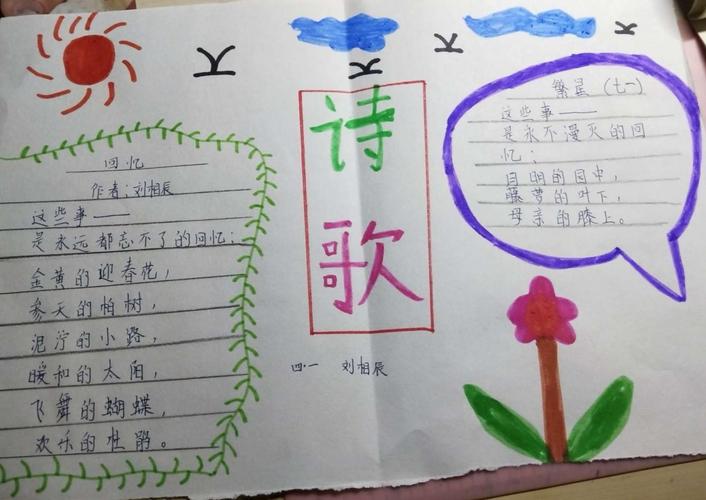 回忆
作者:刘相辰
这些事——
是永远都忘不了的回忆:
金黄的迎春花，
参天的柏树，
泥泞的小路，
暖和的太阳，
飞舞的蝴蝶，
欢乐的
诗
歌
四.一 刘相辰
繁星（七一）
这些事——
是永不漫灭的回
忆:
月明的园中，
藤萝的叶下，
母亲的膝上。